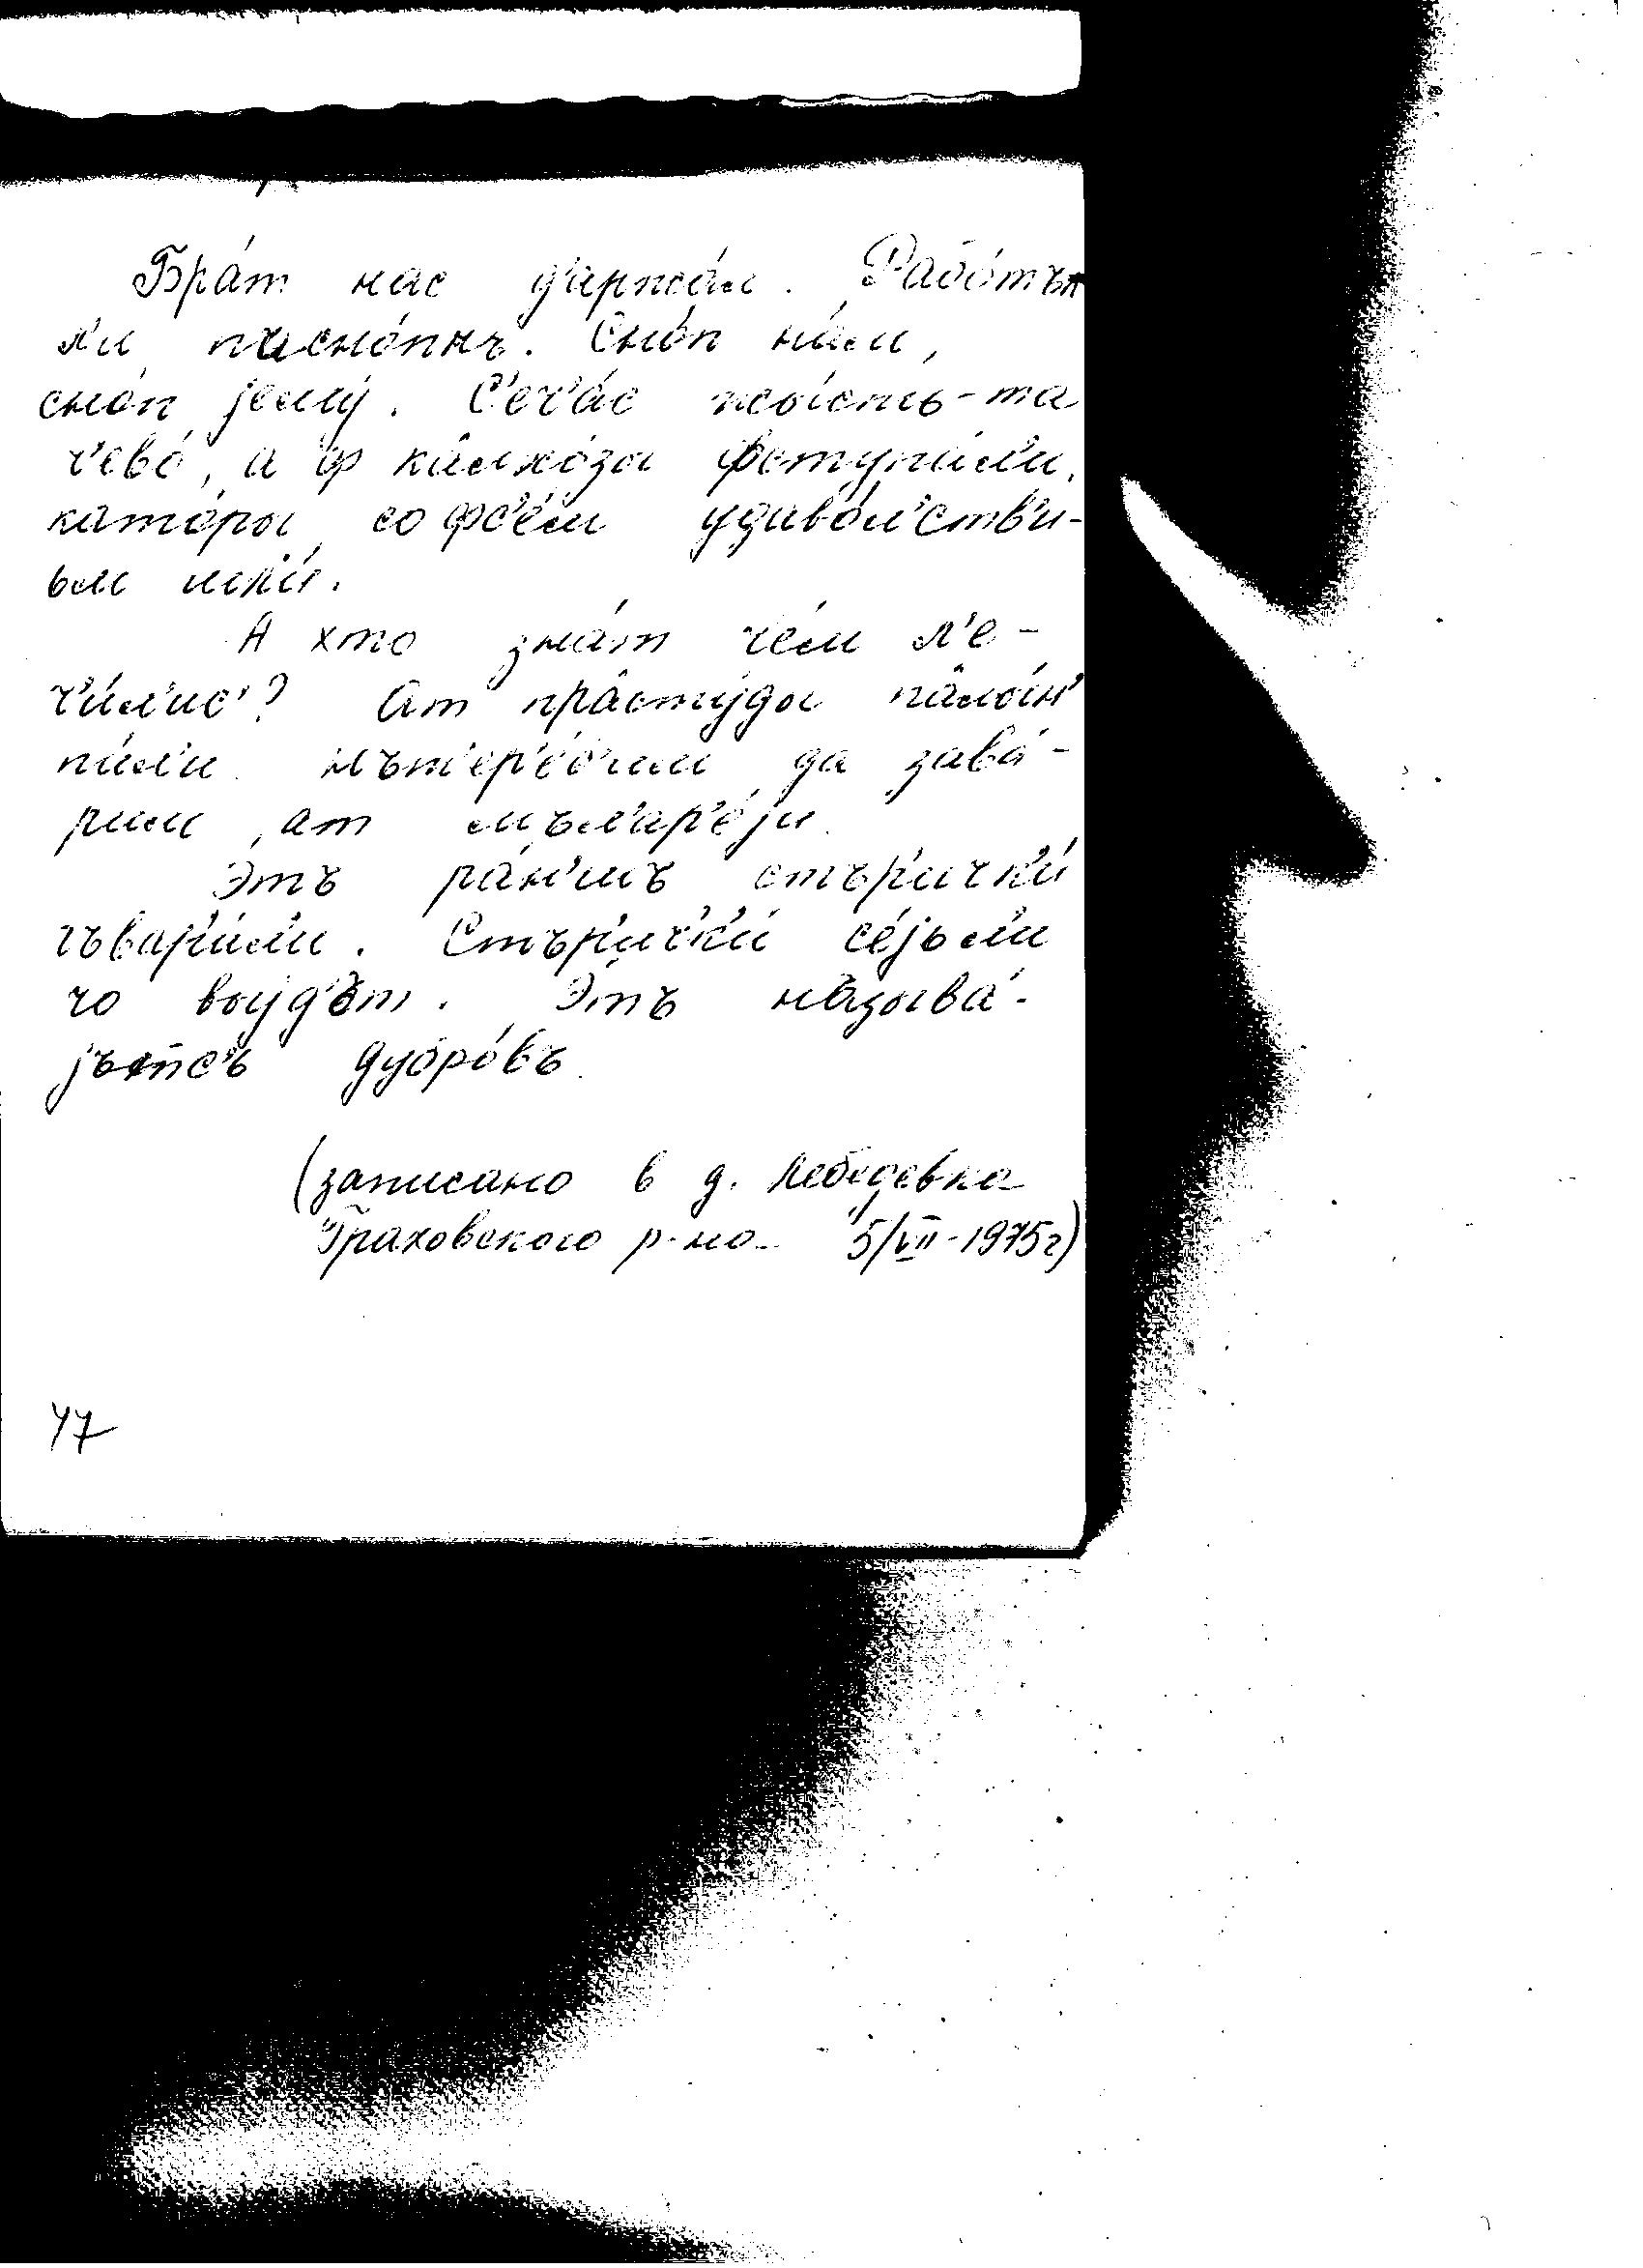 Бра́т нас д'иржа́л. Рабо́тъл
л'и паснопнъ. Сно́п на́м,
сно́п јему́. С'еч'а́с жы́сть-та
ч'ево́, а ф калхо́зы фступа́л'и,
като́ры со фс'е́м удаво́л'ств'и-
ьм шл'и́.
А хто зна́т че́м л'е-
ч'и́л'ис'? Ат прасту́ды палы́н'
пи́л'и нът'ер'е́б'им да зава́-
рим, ат мъл'ар'е́ји.
Этъ ра́н'шъ стър'ичк'и́
гъвар'и́л'и. Стър'ичк'и́ се́јьли
чо вы́јд'ът. Э́тъ нъзыва́-
јътсъ дубро́въ.
(записано в д. Лебедевка
Граховского р-на 5/VII-1975г)
47